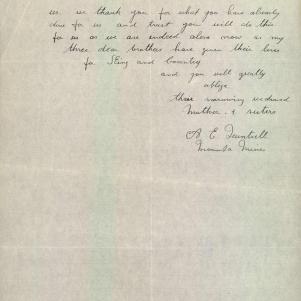 us. we thank you for what you have already
done for us and trust you will do this
for us as we are indeed alone now as my
three dear brothers have given their lives
for King and Country
and you will greatly
oblige
their sorrowing widowed
Mother & sisters
A. E.
Moonta Mines